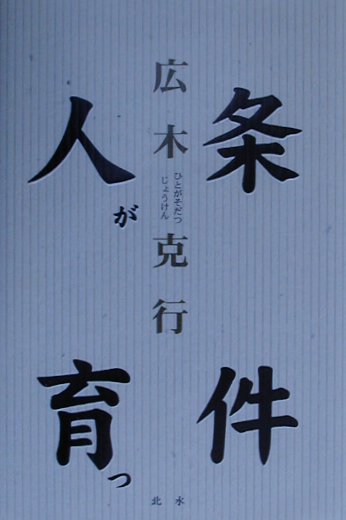 人が育つ
条件
広木克行
ひとがそだつ
じょうけん
北水